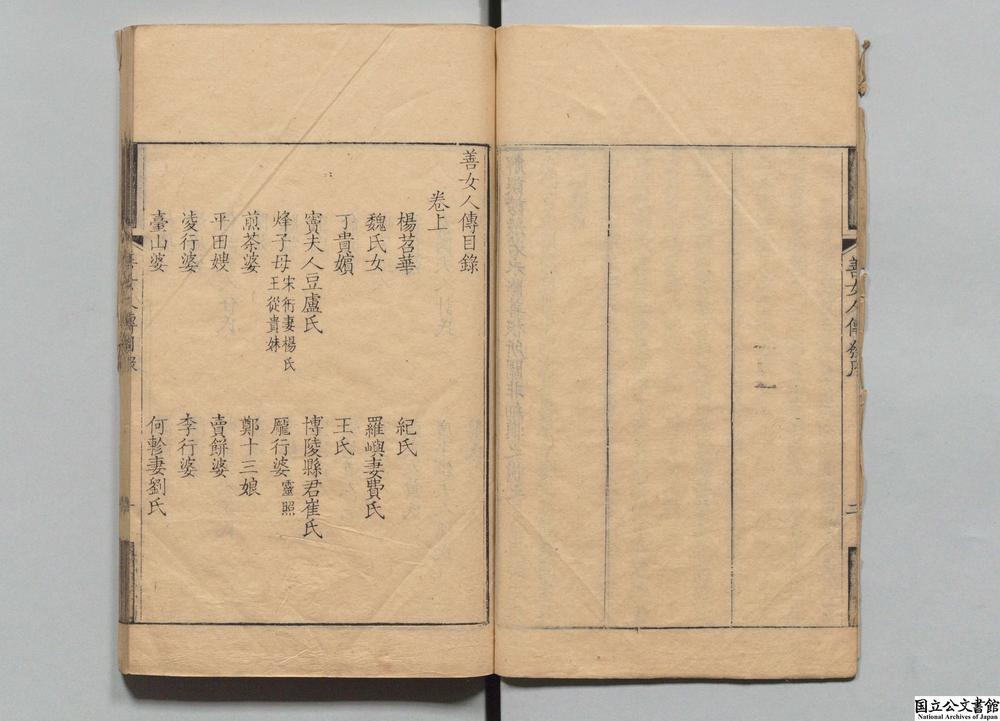 善女人傳發凡
二
善女人傳目錄
卷上
楊苕華
紀氏
魏氏女
羅嶼妻費氏
丁貴嬪
王氏
竇夫人豆盧氏
博陵縣君崔氏
烽子母 宋衍妻楊氏 王從貴妹
龐行婆 靈照
煎茶婆
鄭十三娘
平田嫂
賣餅婆
凌行婆
李行婆
臺山婆
何軫妻劉氏
善女人傳目录
一
国立公文書館
National Archives of Japan